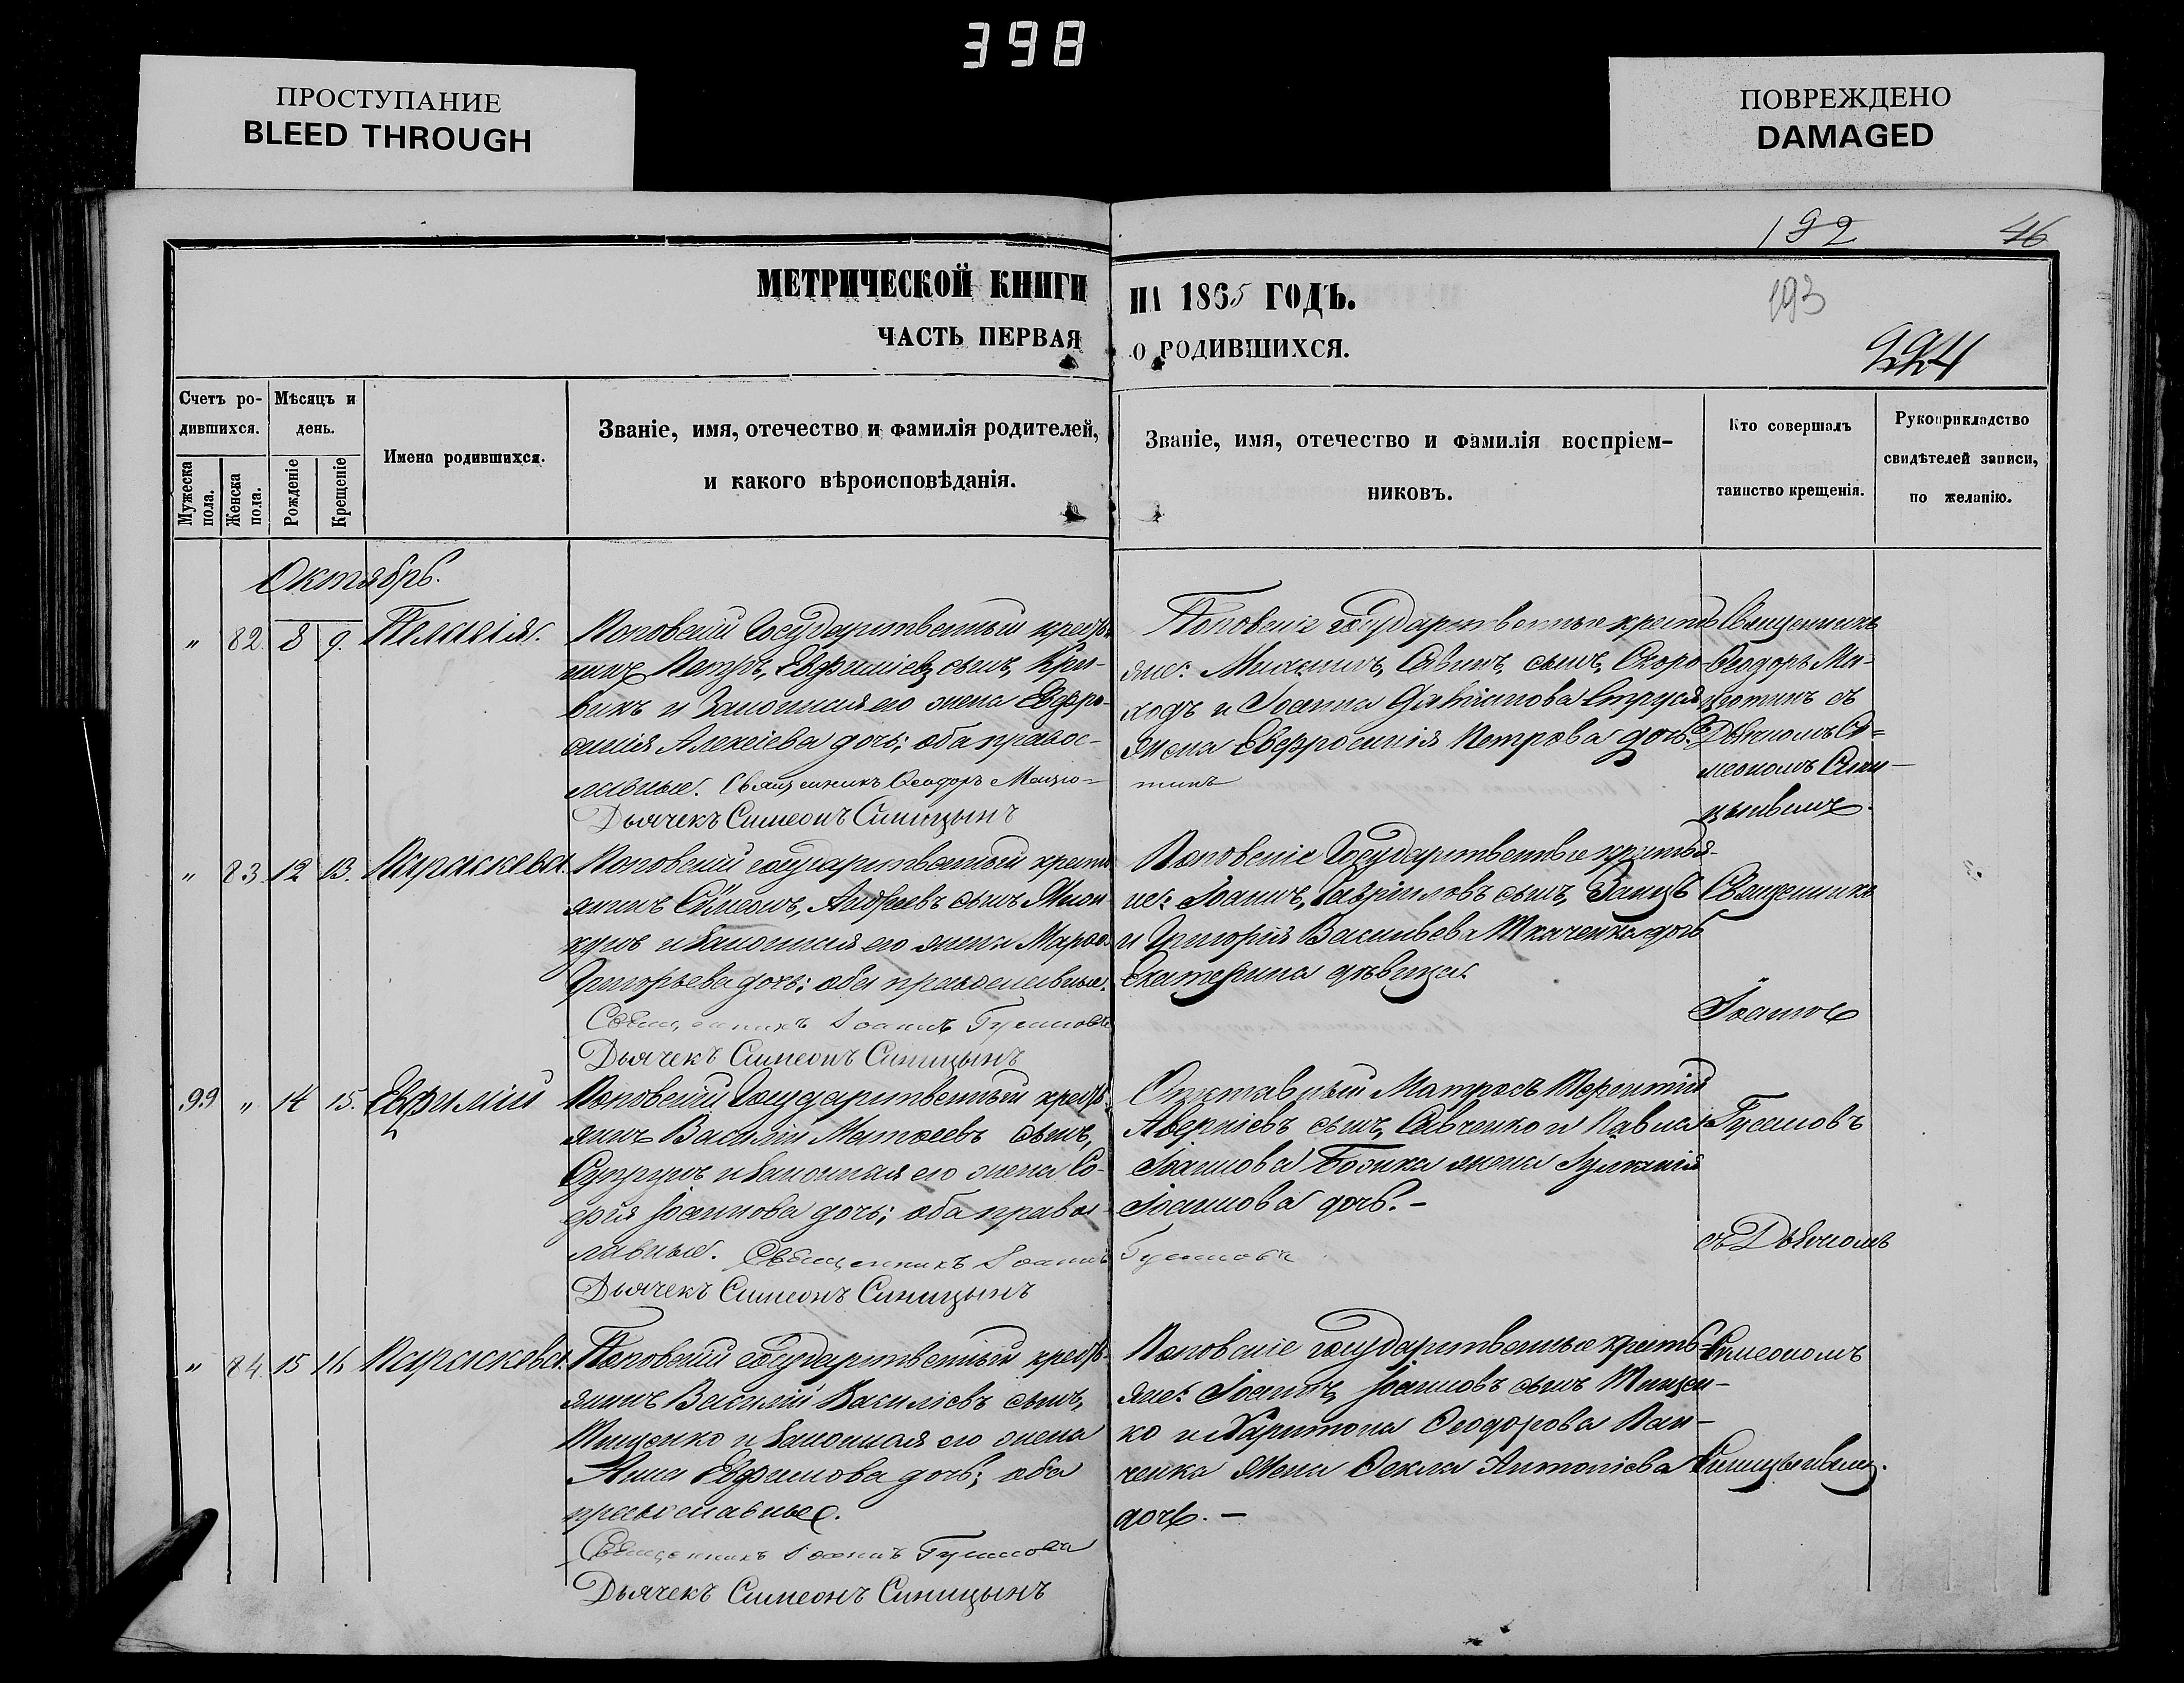 398
ПРОСТУПАНИЕ
BLEED THROUGH
ПОВРЕЖДЕНО
DAMAGED
192
46
193
224
МЕТРИЧЕСКОЙ КНИГИ НА 1865 ГОДЪ.
ЧАСТЬ ПЕРВАЯ О РОДИВШИХСЯ.
Счетъ ро-
дившихся.
Мужеска пола.
Женска пола.
Мѣсяцъ и
день.
Рожденіе
Крещеніе
Имена родившихся.
Званіе, имя, отечество и фамилія родителей,
и какого вѣроисповѣданія.
Званіе, имя, отечество и фамилія воспріем-
никовъ.
Кто совершалъ
таинство крещенія.
Рукоприкладство
свидѣтелей записи,
по желанію.
Октябрь.
" 82. 8 9. Пелагія.
Поповскій Государственный кресть-
янинъ Петръ, Евфиміевъ сынъ,
и Законная его жена Евфро-
синія Алексіева дочь; оба правос-
лавные. Священникъ Ѳеодоръ
Дьячекъ Симеонъ Синицынъ
Поповскіе государственные кресть-
яне: Савинъ, сынъ, Скоро-
ходъ и Іоанна
жена Евфросинія Петрова дочь.
Священникъ
Ѳеодоръ
съ
Дьячкомъ Си-
меономъ Сини-
цынымъ.
" 83. 12 13. Параскева.
Поповскій государственный кресть-
янинъ Симеонъ, Андреевъ сынъ
и Законная его жена Марѳа
Григорьева дочь; оба православные.
Священникъ Іоаннъ
Дьячекъ Симеонъ Синицынъ
Поповскіе Государственные крестья-
не: Іоаннъ, Гавриловъ сынъ, Заицъ
и Григорія Васильева Ткаченка дочь
Екатерина дѣвица.
Священникъ
Іоаннъ
99 " 14 15. Евфимій
Поповскій Государственный кресть-
янинъ Василій Матѳеевъ сынъ,
Супрунъ и Законная его жена Со-
фія Іоаннова дочь; оба правос-
лавные. Священникъ Іоаннъ
Дьячекъ Симеонъ Синицынъ
Отставный Матросъ Терентій
Аверкіевъ сынъ, Савченко и Павла
Іоаннова жена
Іоаннова дочь. –
съ Дьячкомъ
" 84. 15 16 Параскева.
Поповскій Государственный кресть-
янинъ Василій Василіевъ сынъ,
Тищенко и Законная его жена
Анна Евфимова дочь; оба
православные.
Священникъ Іоаннъ
Дьячекъ Симеонъ Синицынъ
Поповскіе государственные кресть-
яне: Іоаннъ, Іоанновъ сынъ Тищен-
ко и Харитона Ѳеодорова Пан-
ченка жена Ѳекла Антоніева
дочь. –
Симеономъ
Синицынымъ.